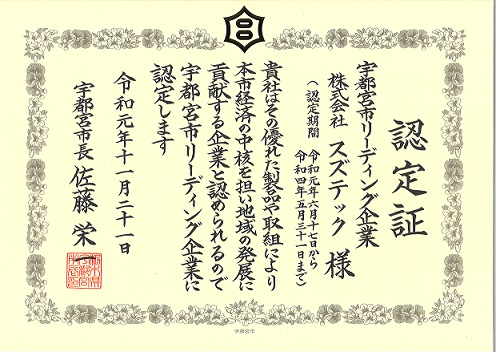 認定証
宇都宮市リーディング企業
株式会社 スズテック 様
(認定期間 令和元年六月十七日から
令和四年五月三十一日まで)
貴社はその優れた製品や取組により
本市経済の中核を担い地域の発展に
貢献する企業と認められるので
宇都宮市リーディング企業に
認定します
令和元年十一月二十一日
宇都宮市長 佐藤 栄一
宇都宮市